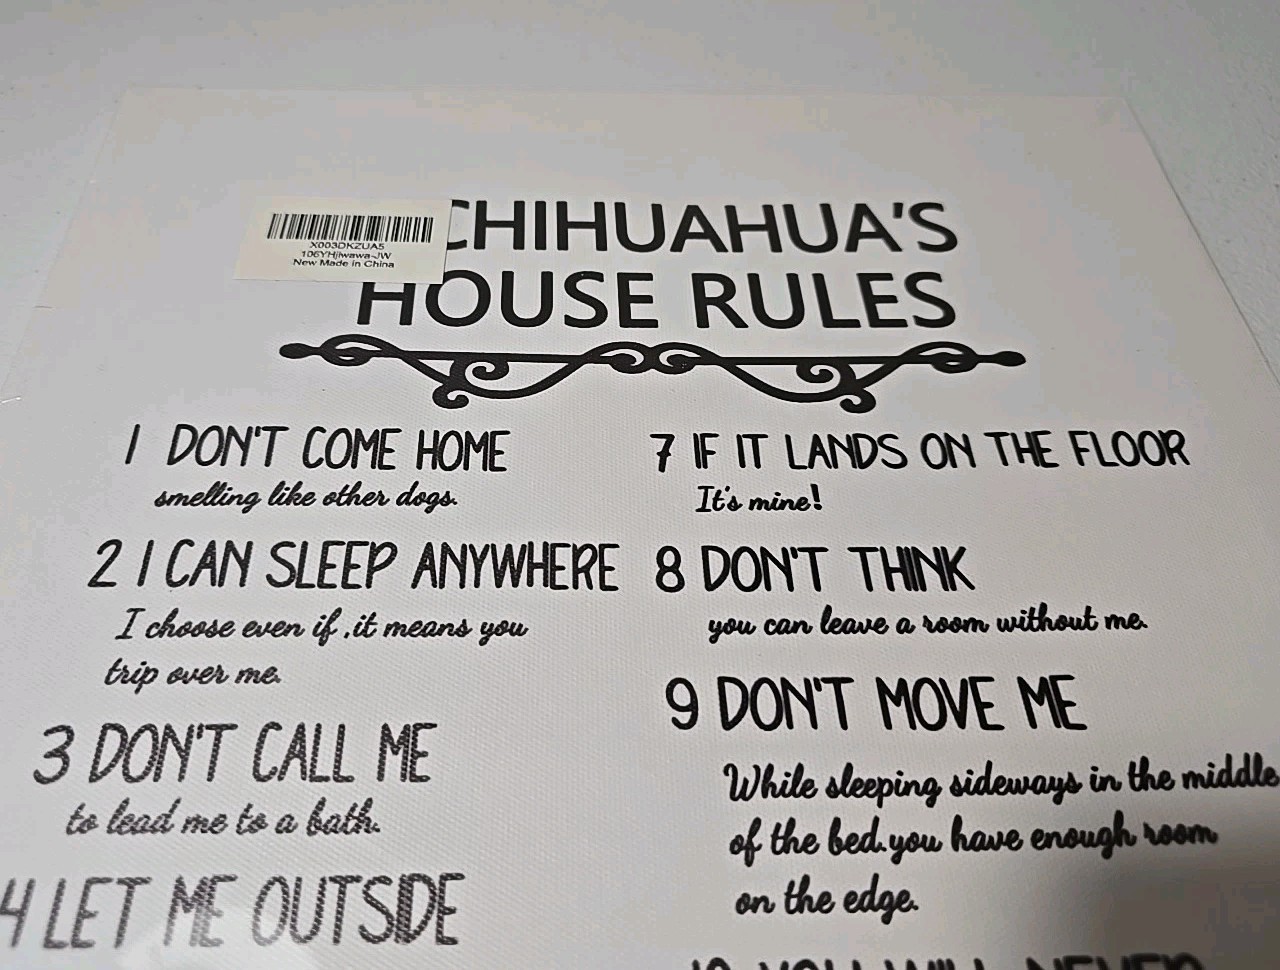 X003DKZUA5
106YHjiwawa-JW
New Made in China
CHIHUAHUA'S
HOUSE RULES
1 DON'T COME HOME
smelling like other dogs.
2 I CAN SLEEP ANYWHERE
I choose even if ,it means you
trip over me.
3 DON'T CALL ME
to lead me to a bath.
4 LET ME OUTSIDE
7 IF IT LANDS ON THE FLOOR
It's mine!
8 DON'T THINK
you can leave a room without me.
9 DON'T MOVE ME
While sleeping sideways in the middle
of the bed.you have enough room
on the edge.
10 YOU WILL NEVER